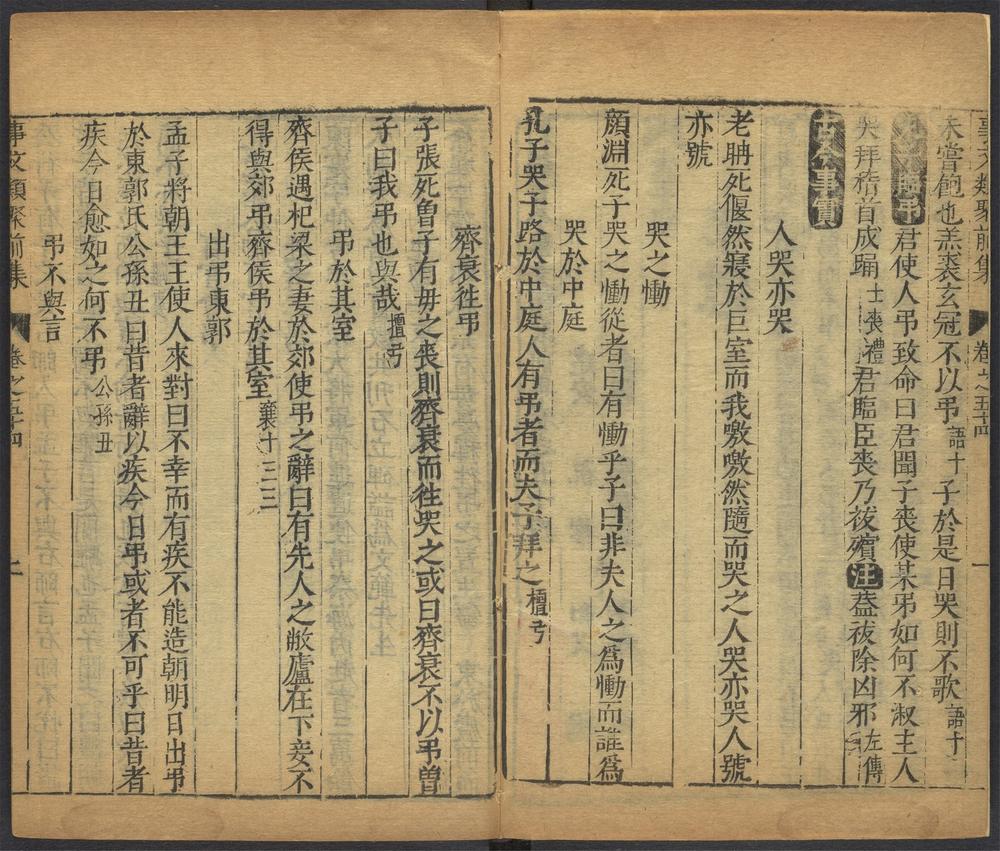 事文類聚前集 卷之五十四 一
未嘗飽也羔裘玄冠不以弔語十 子於是日哭則不歌語十
臨弔君使人弔致命曰君聞子喪使某弔如何不淑主人
哭拜稽首成踊士喪禮君臨臣喪乃祓殯注蓋祓除凶邪左傳
古今事實
人哭亦哭
老聃死偃然寢於巨室而我噭噭然隨而哭之人哭亦哭人號
亦號
哭之慟
顏淵死子哭之慟從者曰有慟乎子曰非夫人之爲慟而誰爲
哭於中庭
孔子哭子路於中庭人有弔者而夫子拜之檀弓
齊衰徃弔
子張死曾子有毋之喪則齊衰而徃哭之或曰齊衰不以弔曽
子曰我弔也與哉檀弓
弔於其室
齊侯遇杞梁之妻於郊使弔之辭曰有先人之敝廬在下妾不
得與郊弔齊侯弔於其室襄十三三
出弔東郭
孟子將朝王王使人來對曰不幸而有疾不能造朝明日出弔
於東郭氏公孫丑曰昔者辭以疾今日弔或者不可乎曰昔者
疾今日愈如之何不弔公孫丑
弔不與言
事文類聚前集 卷之五十四 二